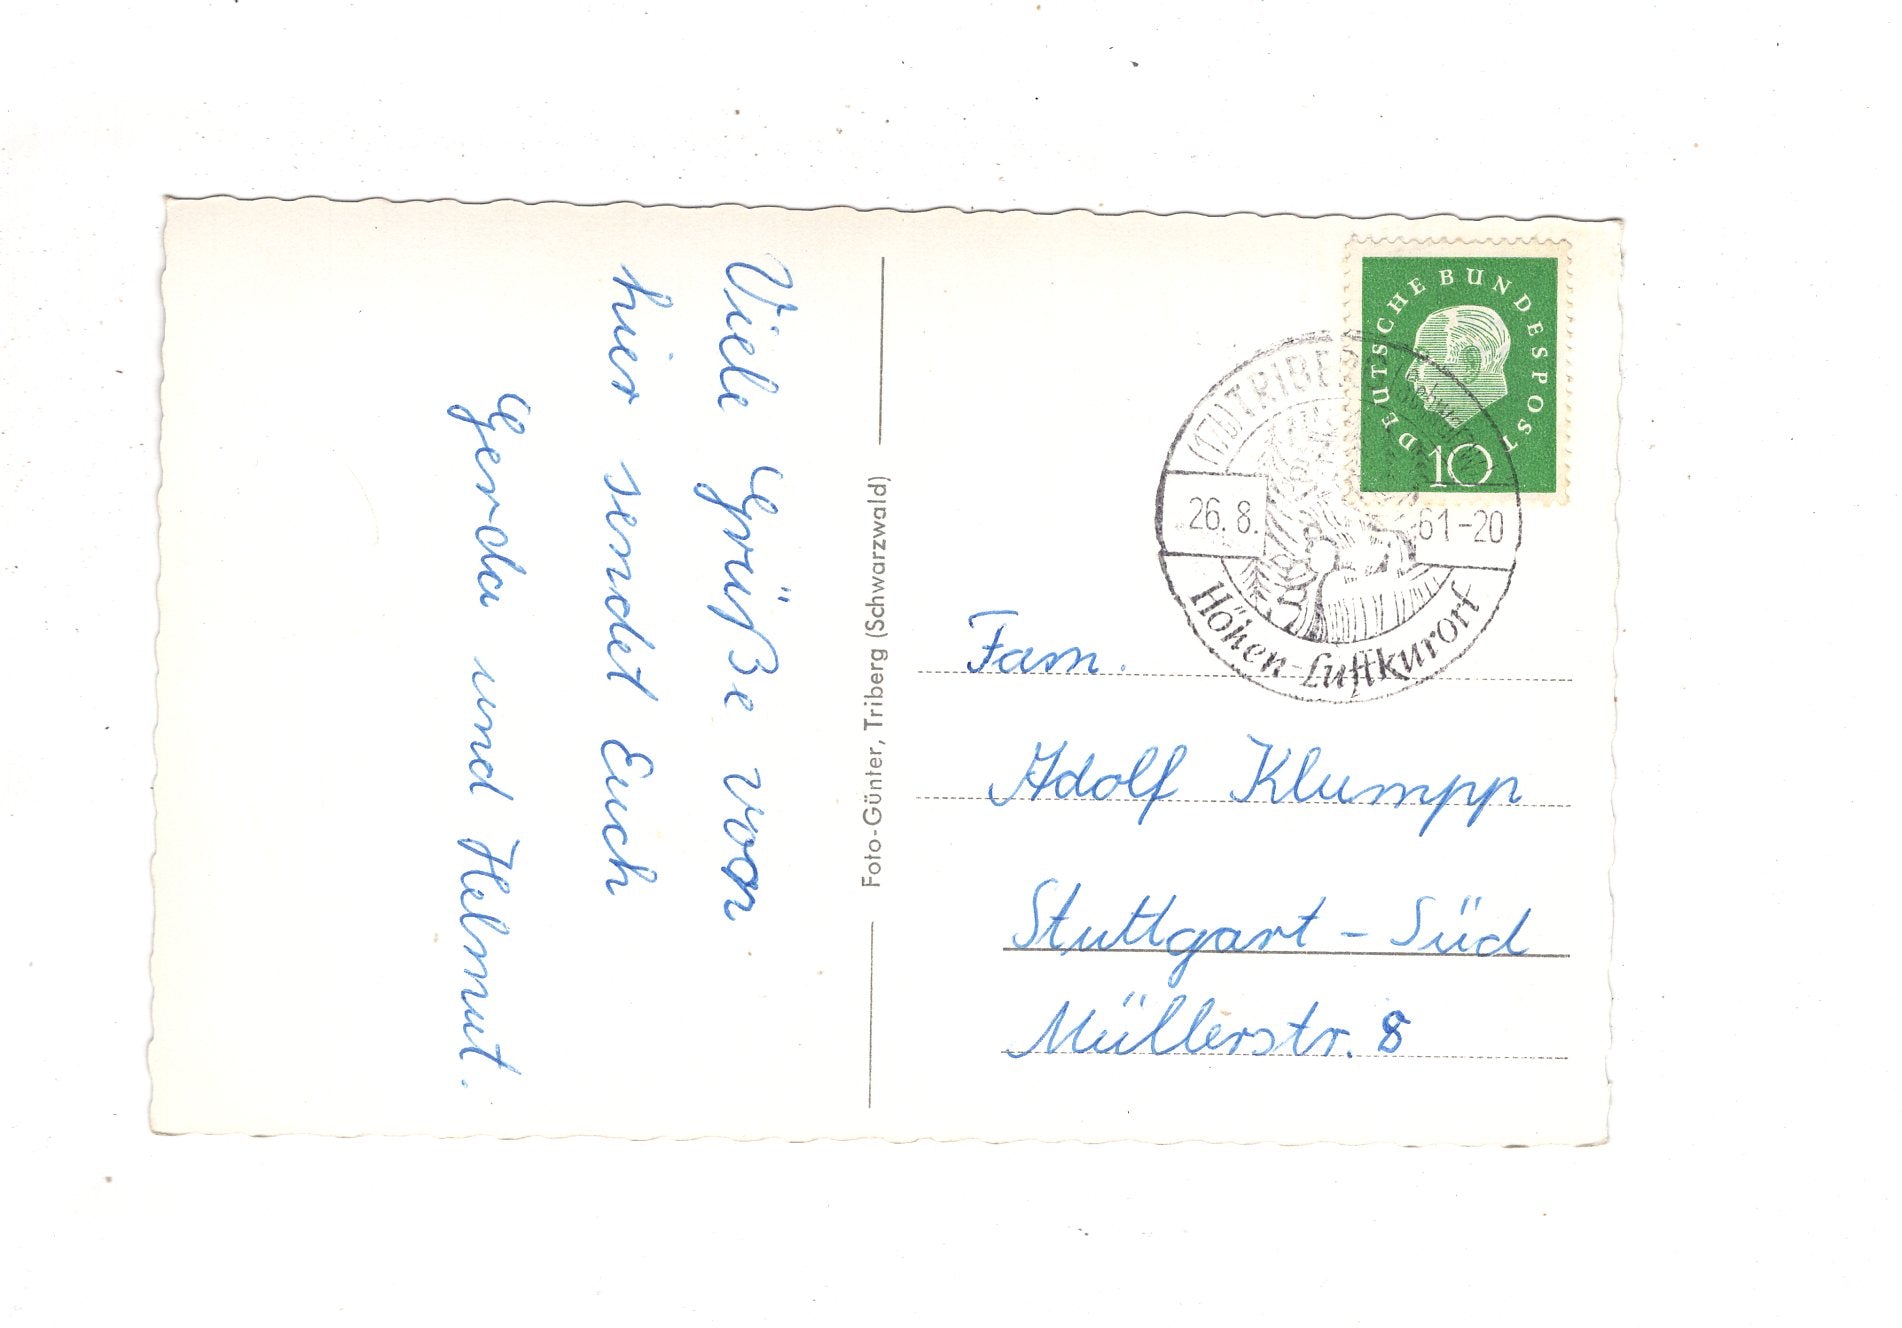 Viele Grüße von
hier sendet Euch
Gerda und Helmut.
Foto-Günter, Triberg (Schwarzwald)
DEUTSCHE BUNDESPOST
10
26.8.
61-20
Höhen-Luftkurort
Fam.
Adolf Klumpp
Stuttgart - Süd
Müllerstr. 8